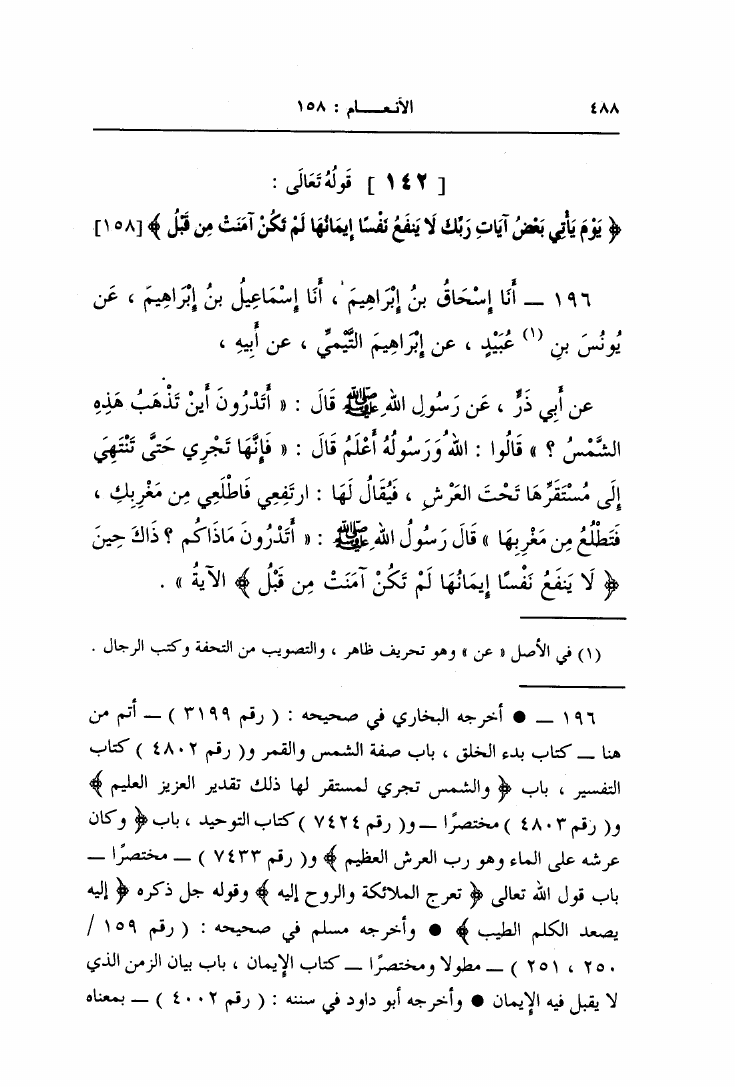 ٤٨٨ الأنعـــام : ١٥٨
[ ١٤٢ ] قَولُهُ تَعَالَى :
﴿ يَوْمَ يَأْتِي بَعْضُ آيَاتِ رَبِّكَ لَا يَنفَعُ نَفْسًا إِيمَانُهَا لَمْ تَكُنْ آمَنَتْ مِن قَبْلُ ﴾ [١٥٨]
١٩٦ – أَنَا إِسْحَاقُ بنُ إِبْرَاهِيمَ ، أَنَا إِسْمَاعِيلُ بنُ إِبْرَاهِيمَ ، عَن
يُونُسَ بنِ (١) عُبَيْدٍ ، عن إِبْرَاهِيمَ التَّيْمِيِّ ، عن أَبِيهِ ،
عن أَبِي ذَرٍّ ، عَن رَسُولِ اللهِ ﷺ قَالَ : « أَتَدْرُونَ أَينَ تَذْهَبُ هَذِهِ
الشَّمْسُ ؟ » قَالُوا : اللهُ وَرَسُولُهُ أَعْلَمُ قَالَ : « فَإِنَّهَا تَجْرِي حَتَّى تَنْتَهِيَ
إِلَى مُسْتَقَرِّهَا تَحْتَ العَرْشِ ، فَيُقَالُ لَهَا : ارتَفِعِي فَاطْلَعِي مِن مَغْرِبِكِ ،
فَتَطْلُعُ مِن مَغْرِبِهَا » قَالَ رَسُولُ اللهِ ﷺ : « أَتَدْرُونَ مَاذَاكُم ؟ ذَاكَ حِينَ
﴿ لَا يَنفَعُ نَفْسًا إِيمَانُهَا لَمْ تَكُنْ آمَنَتْ مِن قَبْلُ ﴾ الآيةُ » .
(١) في الأصل « عن » وهو تحريف ظاهر ، والتصويب من التحفة وكتب الرجال .
١٩٦ – ● أخرجه البخاري في صحيحه : ( رقم ٣١٩٩ ) – أتم من
هنا – كتاب بدء الخلق ، باب صفة الشمس والقمر و( رقم ٤٨٠٢ ) كتاب
التفسير ، باب ﴿ والشمس تجري لمستقر لها ذلك تقدير العزيز العليم ﴾
و( رقم ٤٨٠٣ ) مختصرًا – و( رقم ٧٤٢٤ ) كتاب التوحيد ، باب ﴿ وكان
عرشه على الماء وهو رب العرش العظيم ﴾ و( رقم ٧٤٣٣ ) – مختصرًا –
باب قول الله تعالى ﴿ تعرج الملائكة والروح إليه ﴾ وقوله جل ذكره ﴿ إليه
يصعد الكلم الطيب ﴾ ● وأخرجه مسلم في صحيحه : ( رقم ١٥٩ /
٢٥٠ ، ٢٥١ ) – مطولا ومختصرًا – كتاب الإيمان ، باب بيان الزمن الذي
لا يقبل فيه الإيمان ● وأخرجه أبو داود في سننه : ( رقم ٤٠٠٢ ) – بمعناه